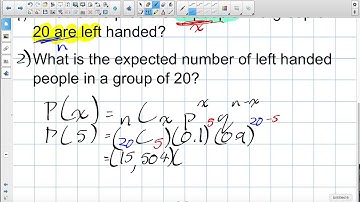 20 are left handed?
n
x
2) What is the expected number of left handed
people in a group of 20?
P(x) = nCx p^x q^n-x
P(5) = (20C5)(0.1)^5(0.9)^20-5
= (15,504)(